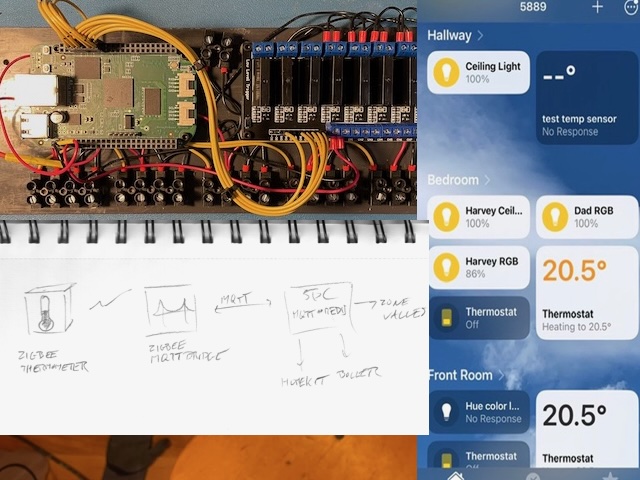 Low Level Trigger
ZIGBEE
THERMOMETER
ZIGBEE
MQTT BRIDGE
MQTT
ZONE
BOILER
5889
Hallway
Ceiling Light
100%
--°
test temp sensor
No Response
Bedroom
Harvey Ceil...
100%
Dad RGB
100%
Harvey RGB
86%
20.5°
Thermostat
Heating to 20.5°
Thermostat
Off
Front Room
Hue color l...
No Response
20.5°
Thermostat
Thermostat
Off